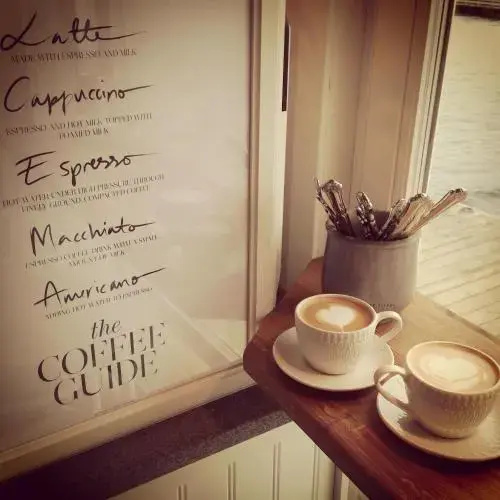 Latte
MADE WITH ESPRESSO AND MILK
Cappuccino
ESPRESSO AND HOT MILK TOPPED WITH
FOAMED MILK
Espresso
HOT WATER UNDER HIGH PRESSURE THROUGH
FINELY GROUND, COMPACTED COFFEE
Macchiato
ESPRESSO COFFEE DRINK WITH A SMALL
AMOUNT OF MILK
Americano
ADDING HOT WATER TO ESPRESSO
the
COFFEE
GUIDE